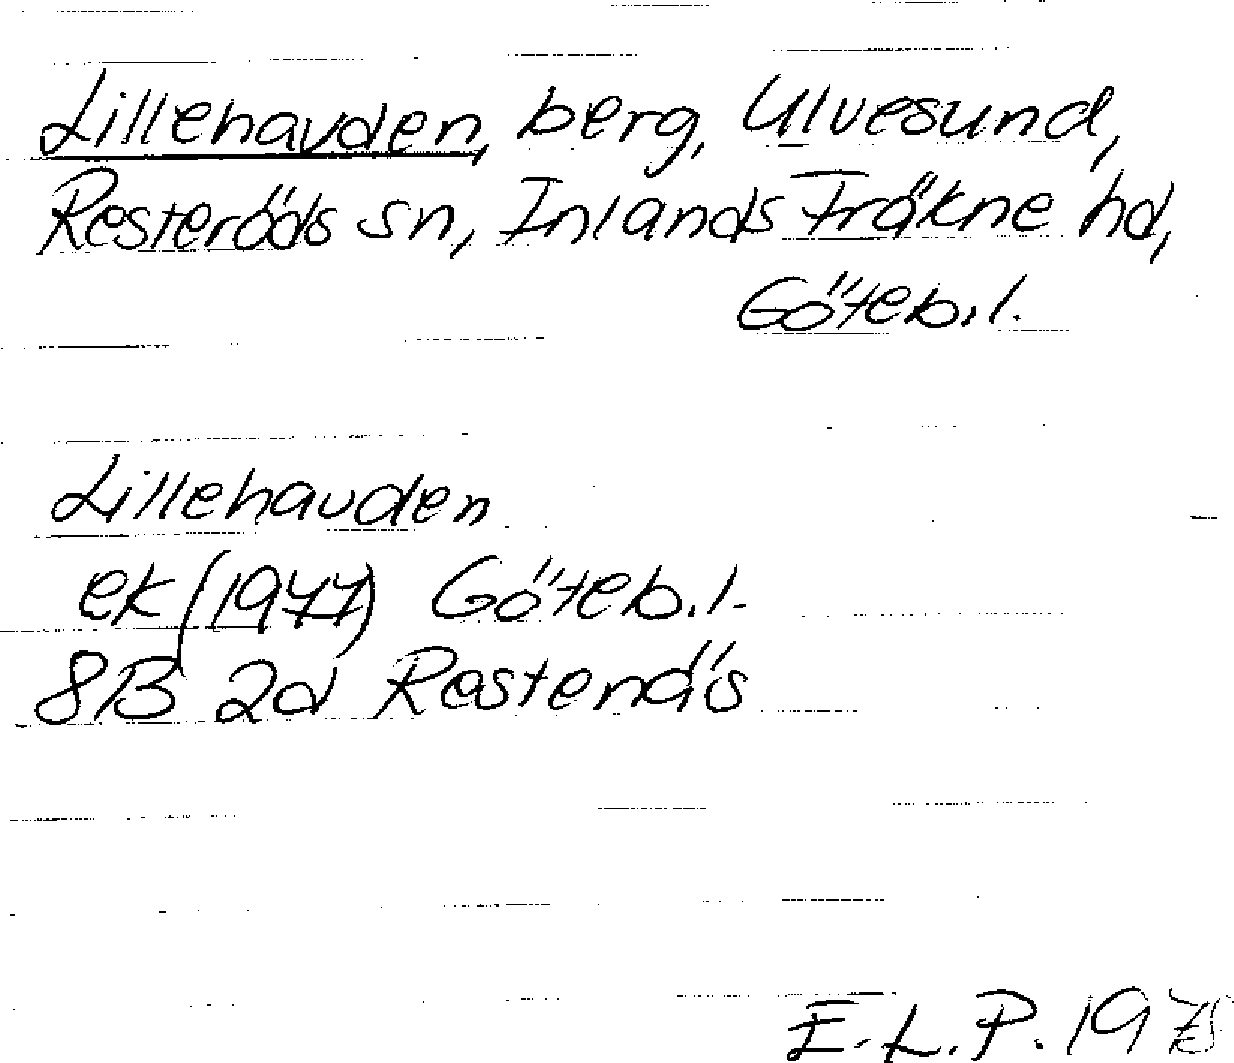 Lillehauden, berg, Ulvesund,
Resteröds sn, Inlands Fräkne hd,
Göteb.l.
Lillehauden
ek (1977) Göteb.l.
8B 2d Restenäs
E.L.P.